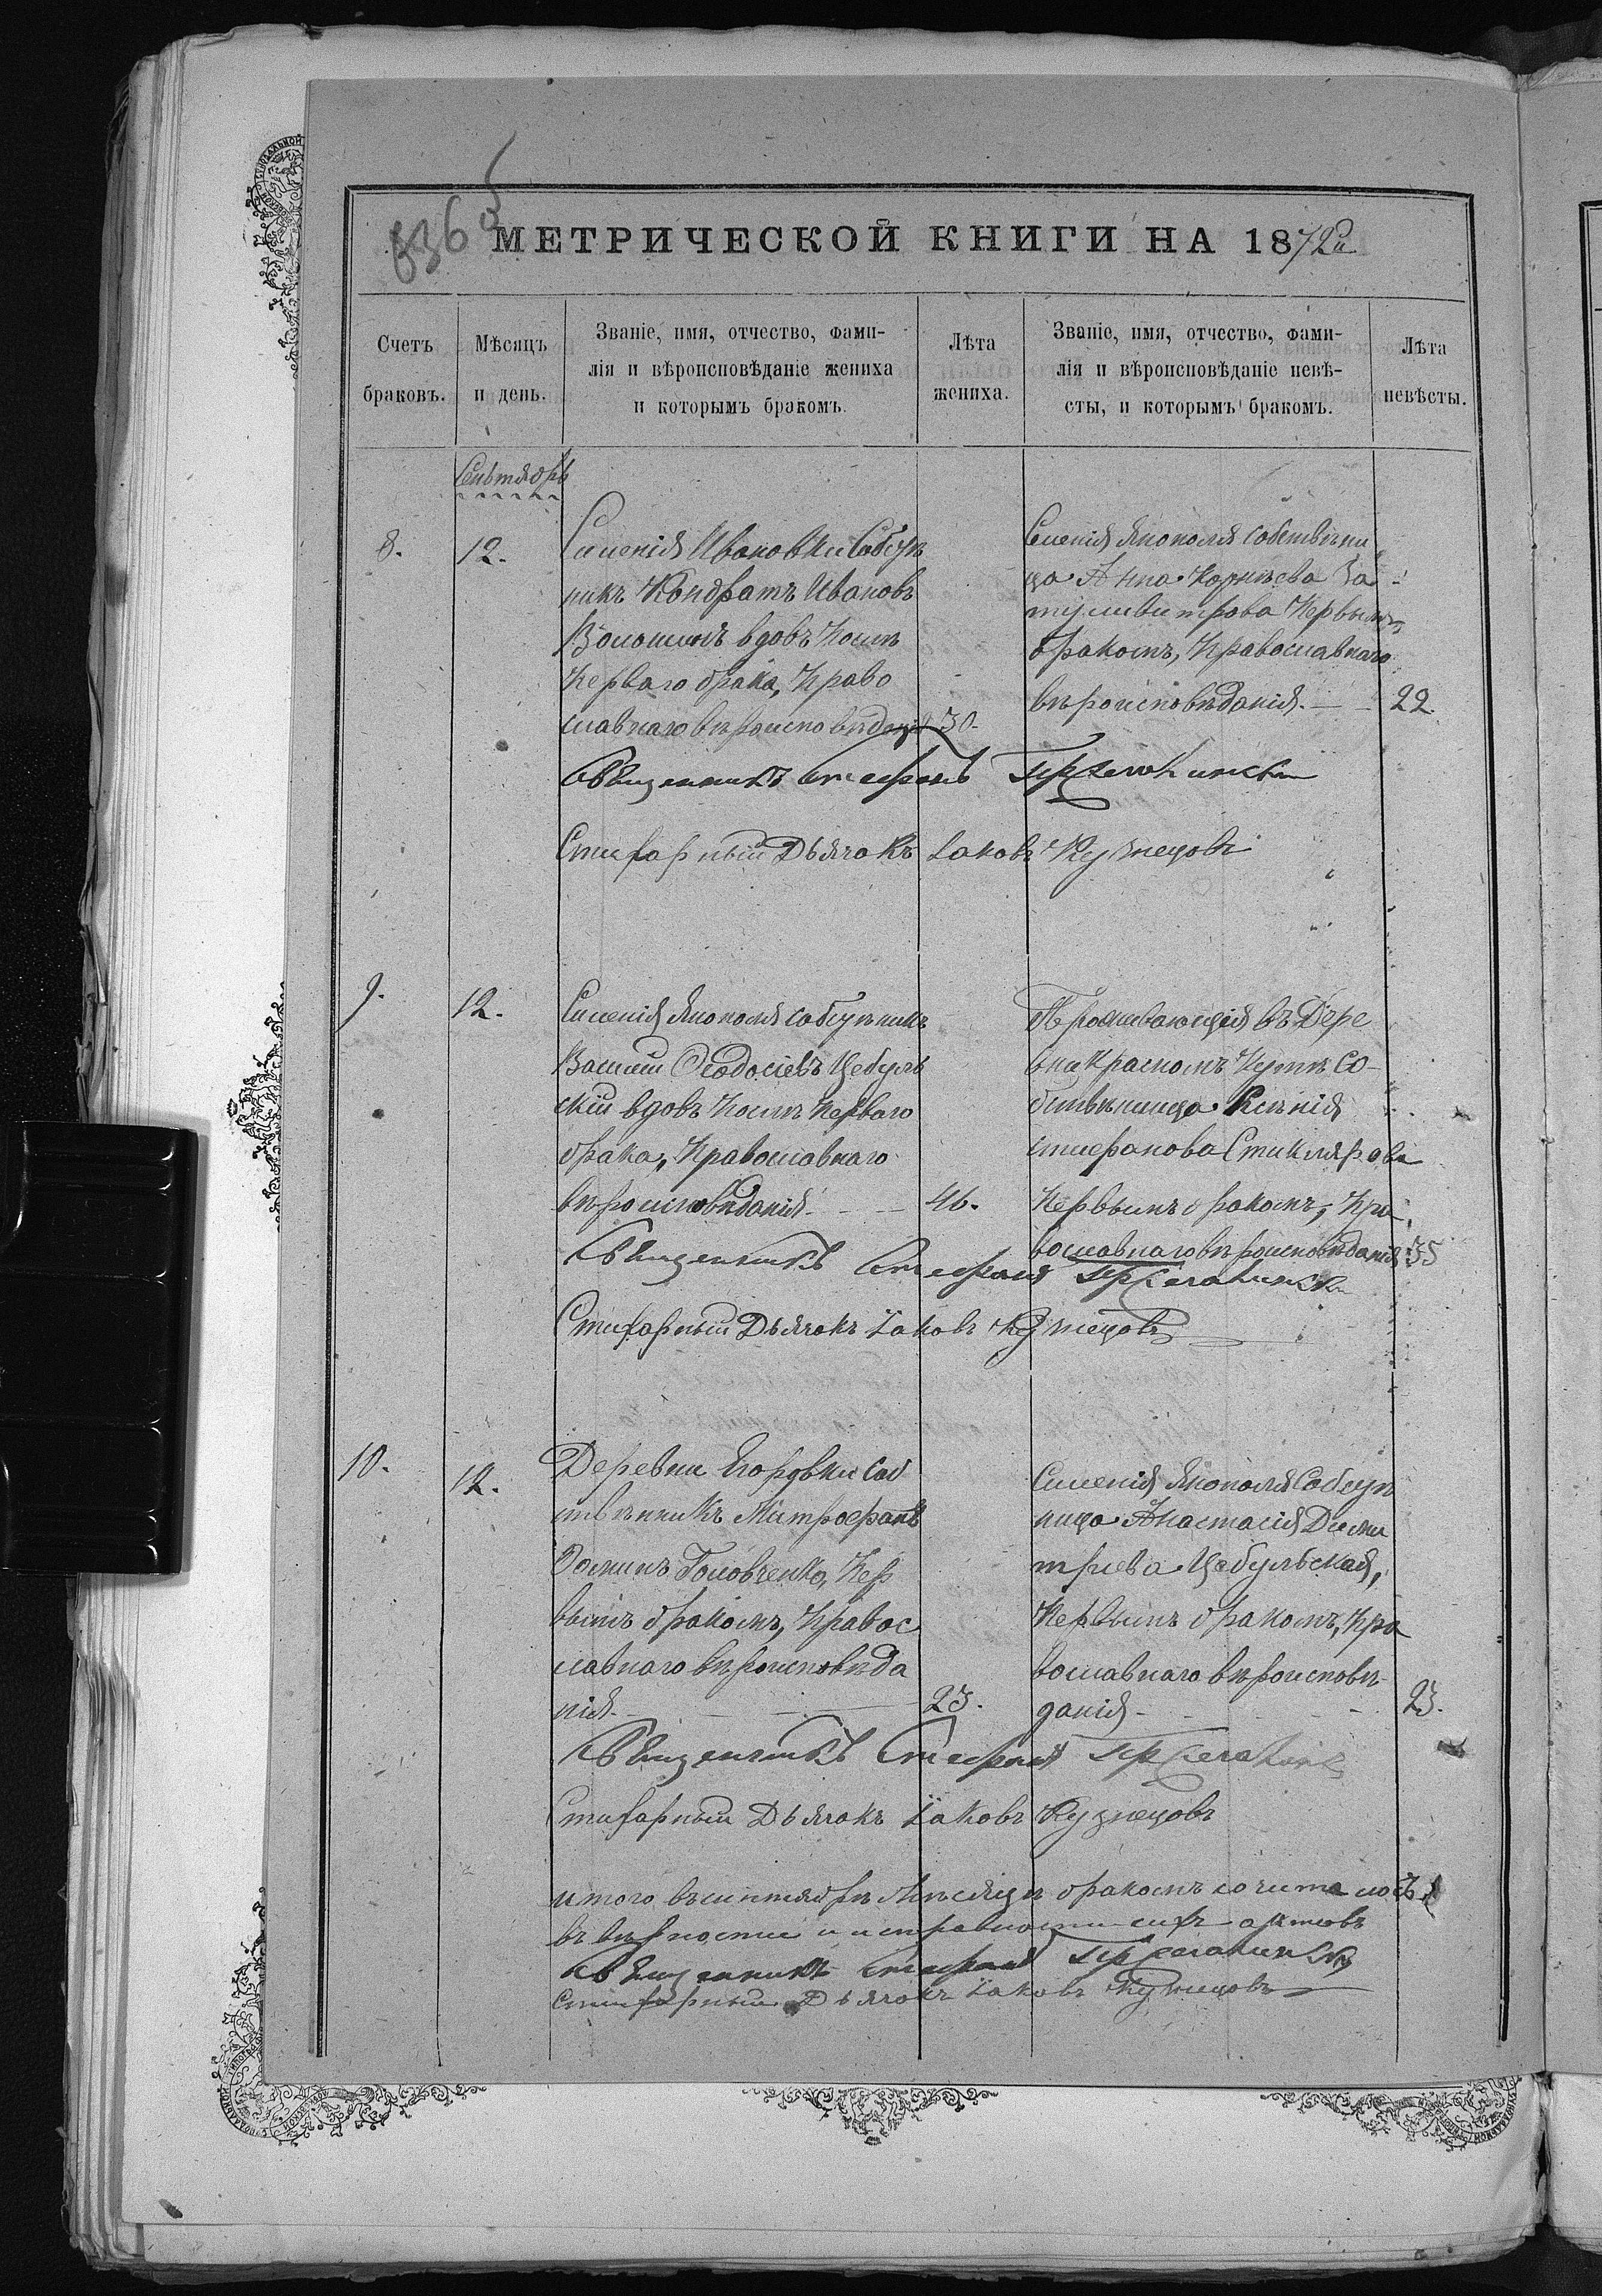 МЕТРИЧЕСКОЙ КНИГИ НА 1872й
Счетъ браковъ.
Мѣсяцъ и день.
Званіе, имя, отчество, фами-
лія и вѣроисповѣданіе жениха
и которымъ бракомъ.
Лѣта жениха.
Званіе, имя, отчество, фами-
лія и вѣроисповѣданіе невѣ-
сты, и которымъ бракомъ.
Лѣта невѣсты.
Сентябрь
8.
12.
Имѣнія Ивановки
никъ Кондратъ Ивановъ
Волошинъ вдовъ послѣ
перваго брака, право
славнаго вѣроисповѣданія
30.
Имѣнія Янополя собствѣнни
ца Анна Корнѣева
первымъ
бракомъ, православнаго
вѣроисповѣданія.
22.
Священникъ Стефанъ
Стихарный Дьячокъ Іаковъ Кузнецовъ
9.
12.
Имѣнія Янополя
Василій Ѳеодосіевъ Цебуль
скій вдовъ послѣ перваго
брака, православнаго
вѣроисповѣданія
46.
Проживающія въ Дере
вни Красномъ Кутѣ со-
бствѣнница Ксѣнія
Стефанова Стиклярова
первымъ бракомъ, пра
вославнаго вѣроисповѣданія
35
Священникъ Стефанъ
Стихарный Дьячокъ Іаковъ Кузнецовъ
10.
12.
Деревни Егоровки Соб
ствѣнникъ Митрофанъ
Головченко, пер
вымъ бракомъ, правос
лавнаго вѣроисповѣда
нія
23.
Имѣнія Янополя
ница Анастасія Дими
тріева Цебульская,
первымъ бракомъ, пра
вославнаго вѣроисповѣ-
данія
23.
Священникъ Стефанъ
Стихарный Дьячокъ Іаковъ Кузнецовъ
Итого въ сентябрѣ мѣсяцѣ бракомъ сочиталось 3
въ вѣрности и исправности сихъ актовъ
Священникъ Стефанъ
Стихарный Дьячокъ Іаковъ Кузнецовъ